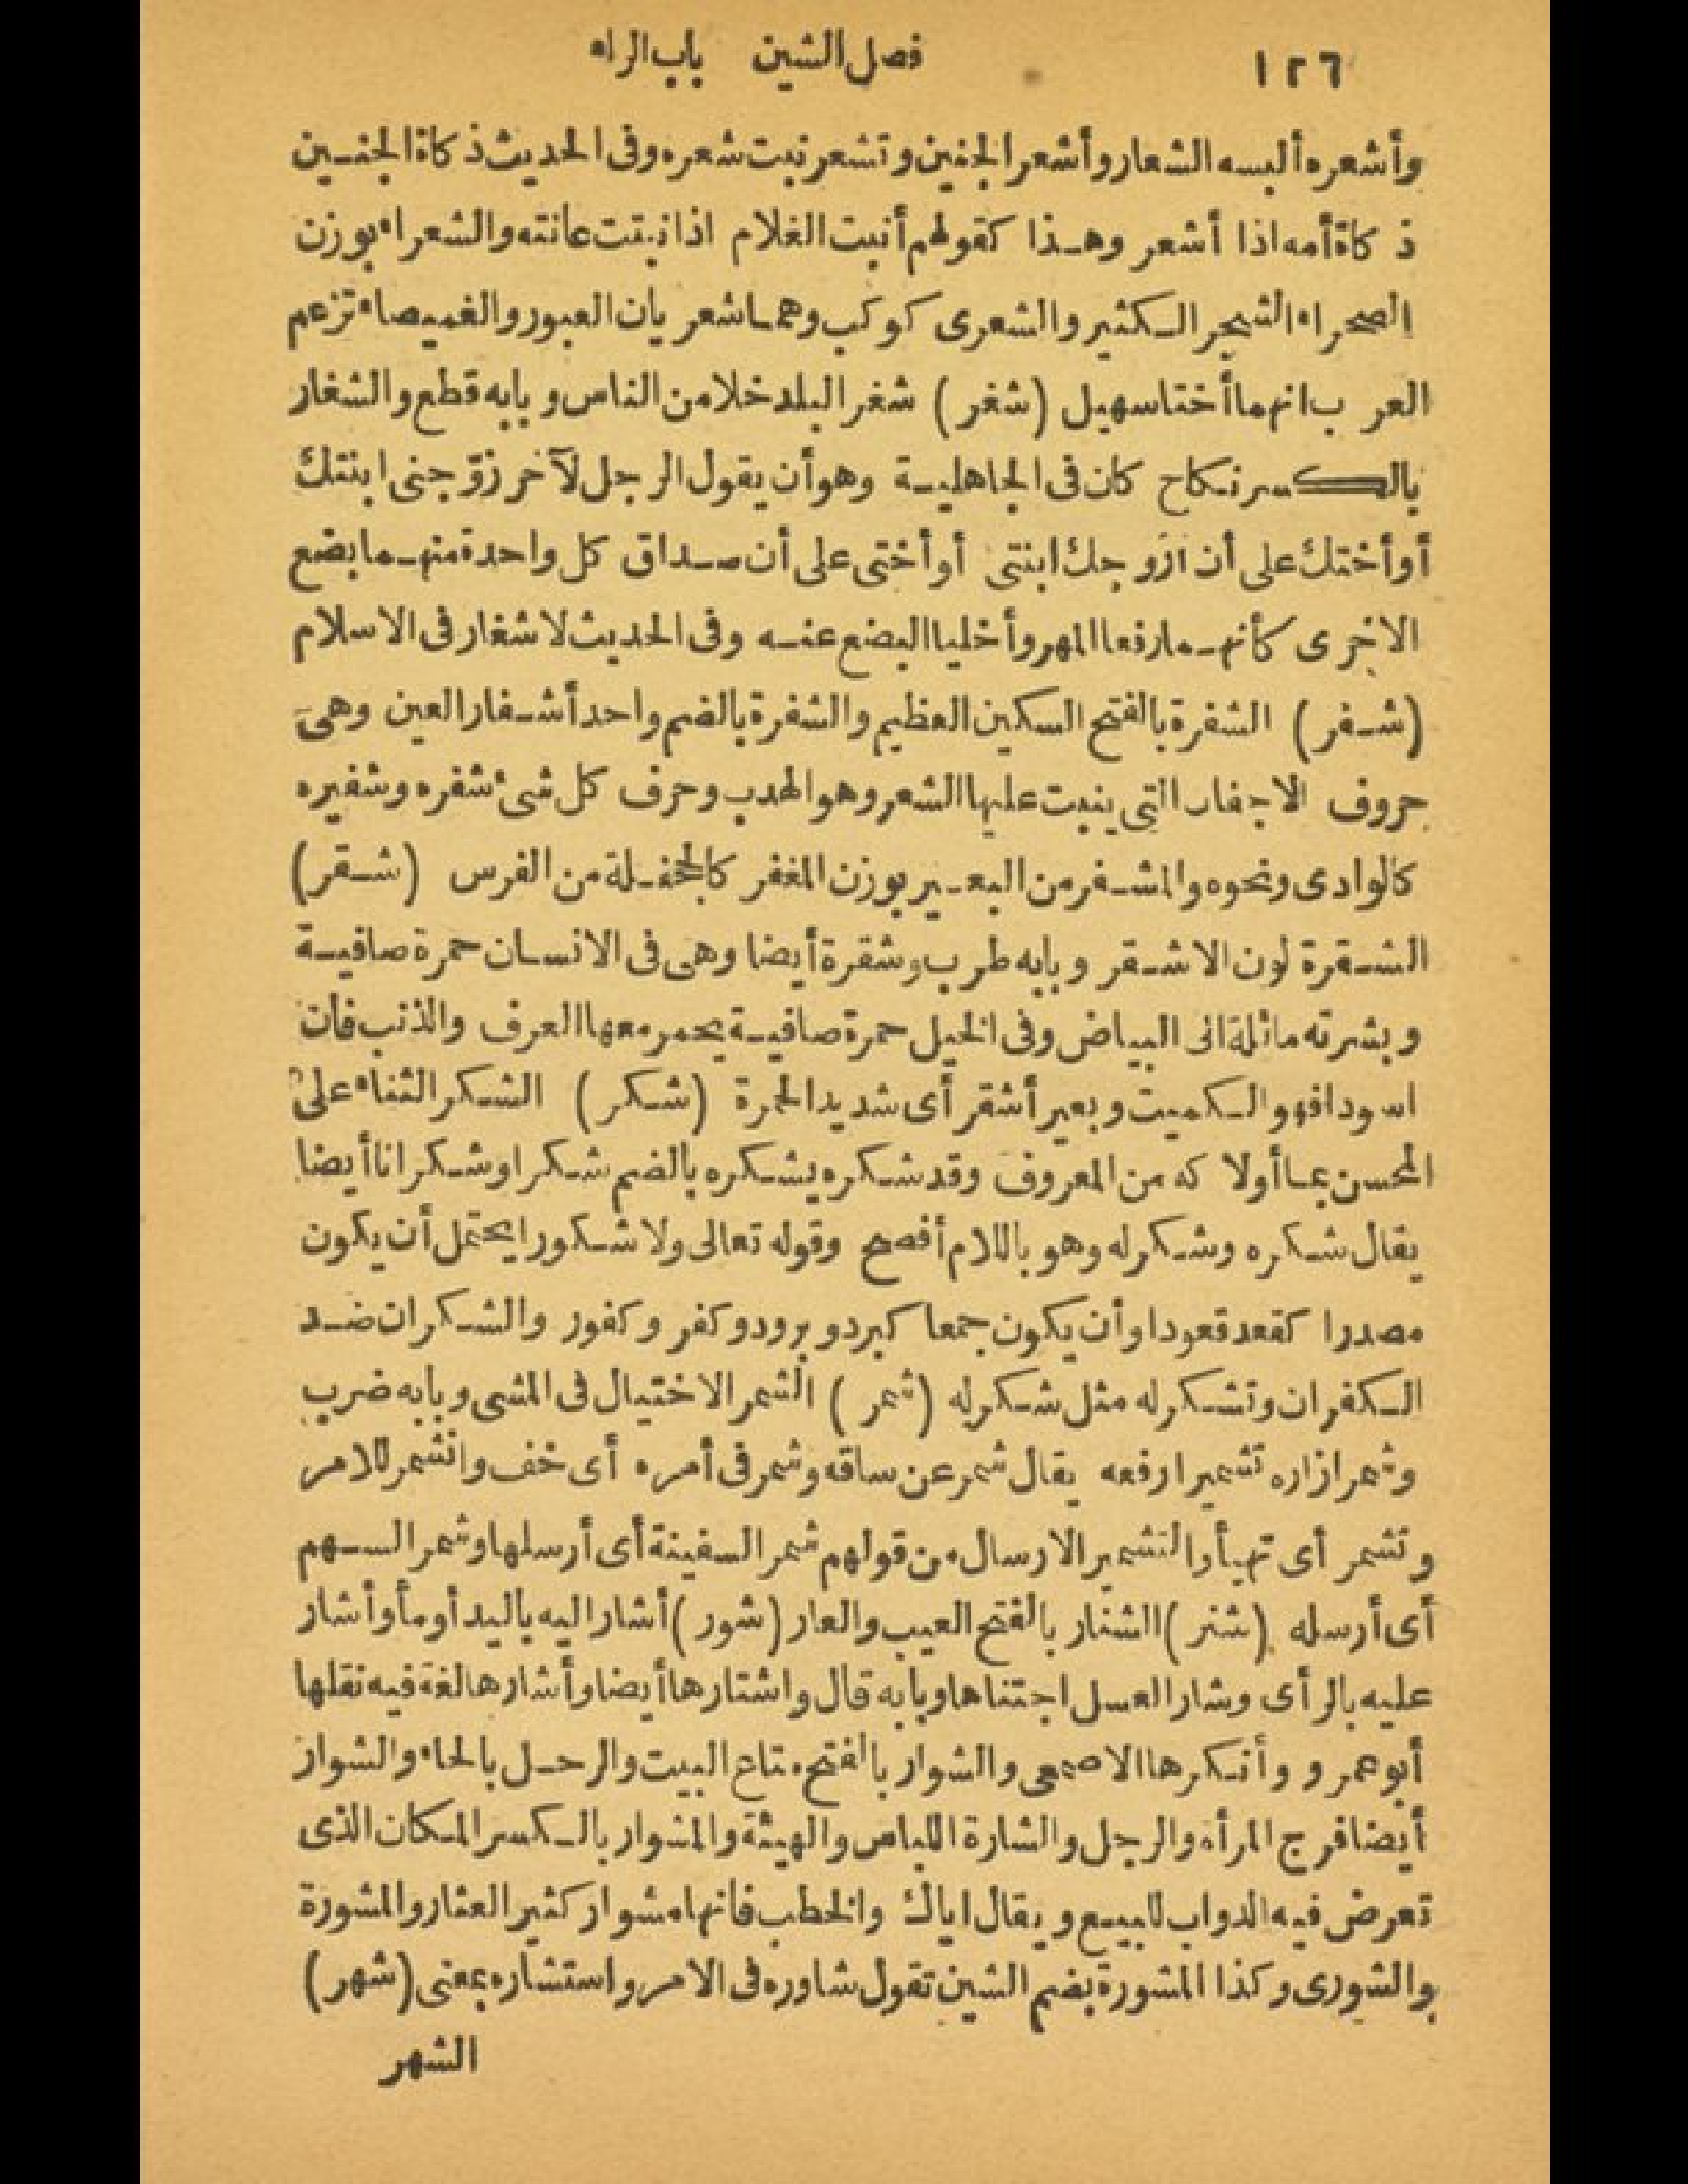 ١٢٦ فصل الشين باب الراء
وأشعره ألبسه الشعار وأشعر الجنين وتشعر نبت شعره وفى الحديث ذكاة الجنين
ذكاة أمه اذا أشعر وهذا كقولهم أنبت الغلام اذا نبتت عانته والشعراء بوزن
الصحراء الشجر الكثير والشعرى كوكب وهما شعريان العبور والغميصاء تزعم
العرب انهما أختا سهيل (شغر) شغر البلد خلا من الناس وبابه قطع والشغار
بالكسر نكاح كان فى الجاهلية وهو أن يقول الرجل لآخر زوّجنى ابنتك
أو أختك على أن أزوجك ابنتى أو أختى على أن صداق كل واحدة منهما بضع
الاخرى كأنهما رفعا المهر وأخليا البضع عنه وفى الحديث لا شغار فى الاسلام
(شفر) الشفرة بالفتح السكين العظيم والشفرة بالضم واحد أشفار العين وهى
حروف الاجفان التى ينبت عليها الشعر وهو الهدب وحرف كل شئ شفره وشفيره
كالوادى ونحوه والمشفر من البعير بوزن المغفر كالجحفلة من الفرس (شقر)
الشقرة لون الاشقر وبابه طرب وشقرة أيضا وهى فى الانسان حمرة صافية
وبشرته مائلة الى البياض وفى الخيل حمرة صافية يحمر معها العرف والذنب فان
اسودا فهو الكميت وبعير أشقر أى شديد الحمرة (شكر) الشكر الثناء على
المحسن بما أولاكه من المعروف وقد شكره يشكره بالضم شكرا وشكرانا أيضا
يقال شكره وشكر له وهو باللام أفصح وقوله تعالى ولا شكورا يحتمل أن يكون
مصدرا كقعد قعودا وأن يكون جمعا كبرد وبرود وكفر وكفور والشكران ضد
الكفران وتشكر له مثل شكر له (شمر) الشمر الاختيال فى المشى وبابه ضرب
وشمر ازاره تشميرا رفعه يقال شمر عن ساقه وشمر فى أمره أى خف وانشمر للامر
وتشمر أى تهيأ والتشمير الارسال من قولهم شمر السفينة أى أرسلها وشمر السهم
أى أرسله (شنر) الشنار بالفتح العيب والعار (شور) أشار اليه باليد أومأ وأشار
عليه بالرأى وشار العسل اجتناها وبابه قال واشتارها أيضا وأشارها لغة فيه نقلها
أبو عمرو وأنكرها الاصمعى والشوار بالفتح متاع البيت والرحل بالحاء والشوار
أيضا فرج المرأة والرجل والشارة اللباس والهيئة والمشوار بالكسر المكان الذى
تعرض فيه الدواب للبيع ويقال اياك والخطب فانها مشوار كثير العثار والمشورة
والشورى وكذا المشورة بضم الشين تقول شاوره فى الامر واستشاره بمعنى (شهر)
الشهر